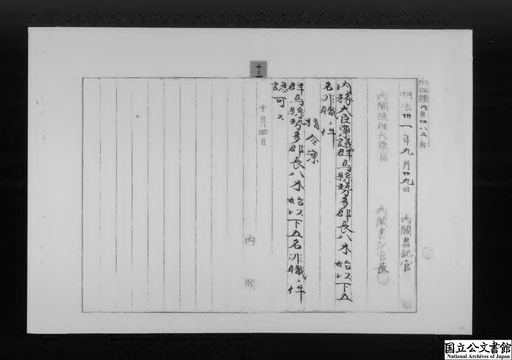 明治卅一年九月廿九日
内閣書記官
内閣総理大臣
内閣書記官長
内務大臣
群馬県勢多郡長八木始以下五
名非職ノ件
指令案
群馬県勢多郡長八木始以下五名非職ノ件
認可ス
十月四日
内閣
十三
国立公文書館
National Archives of Japan